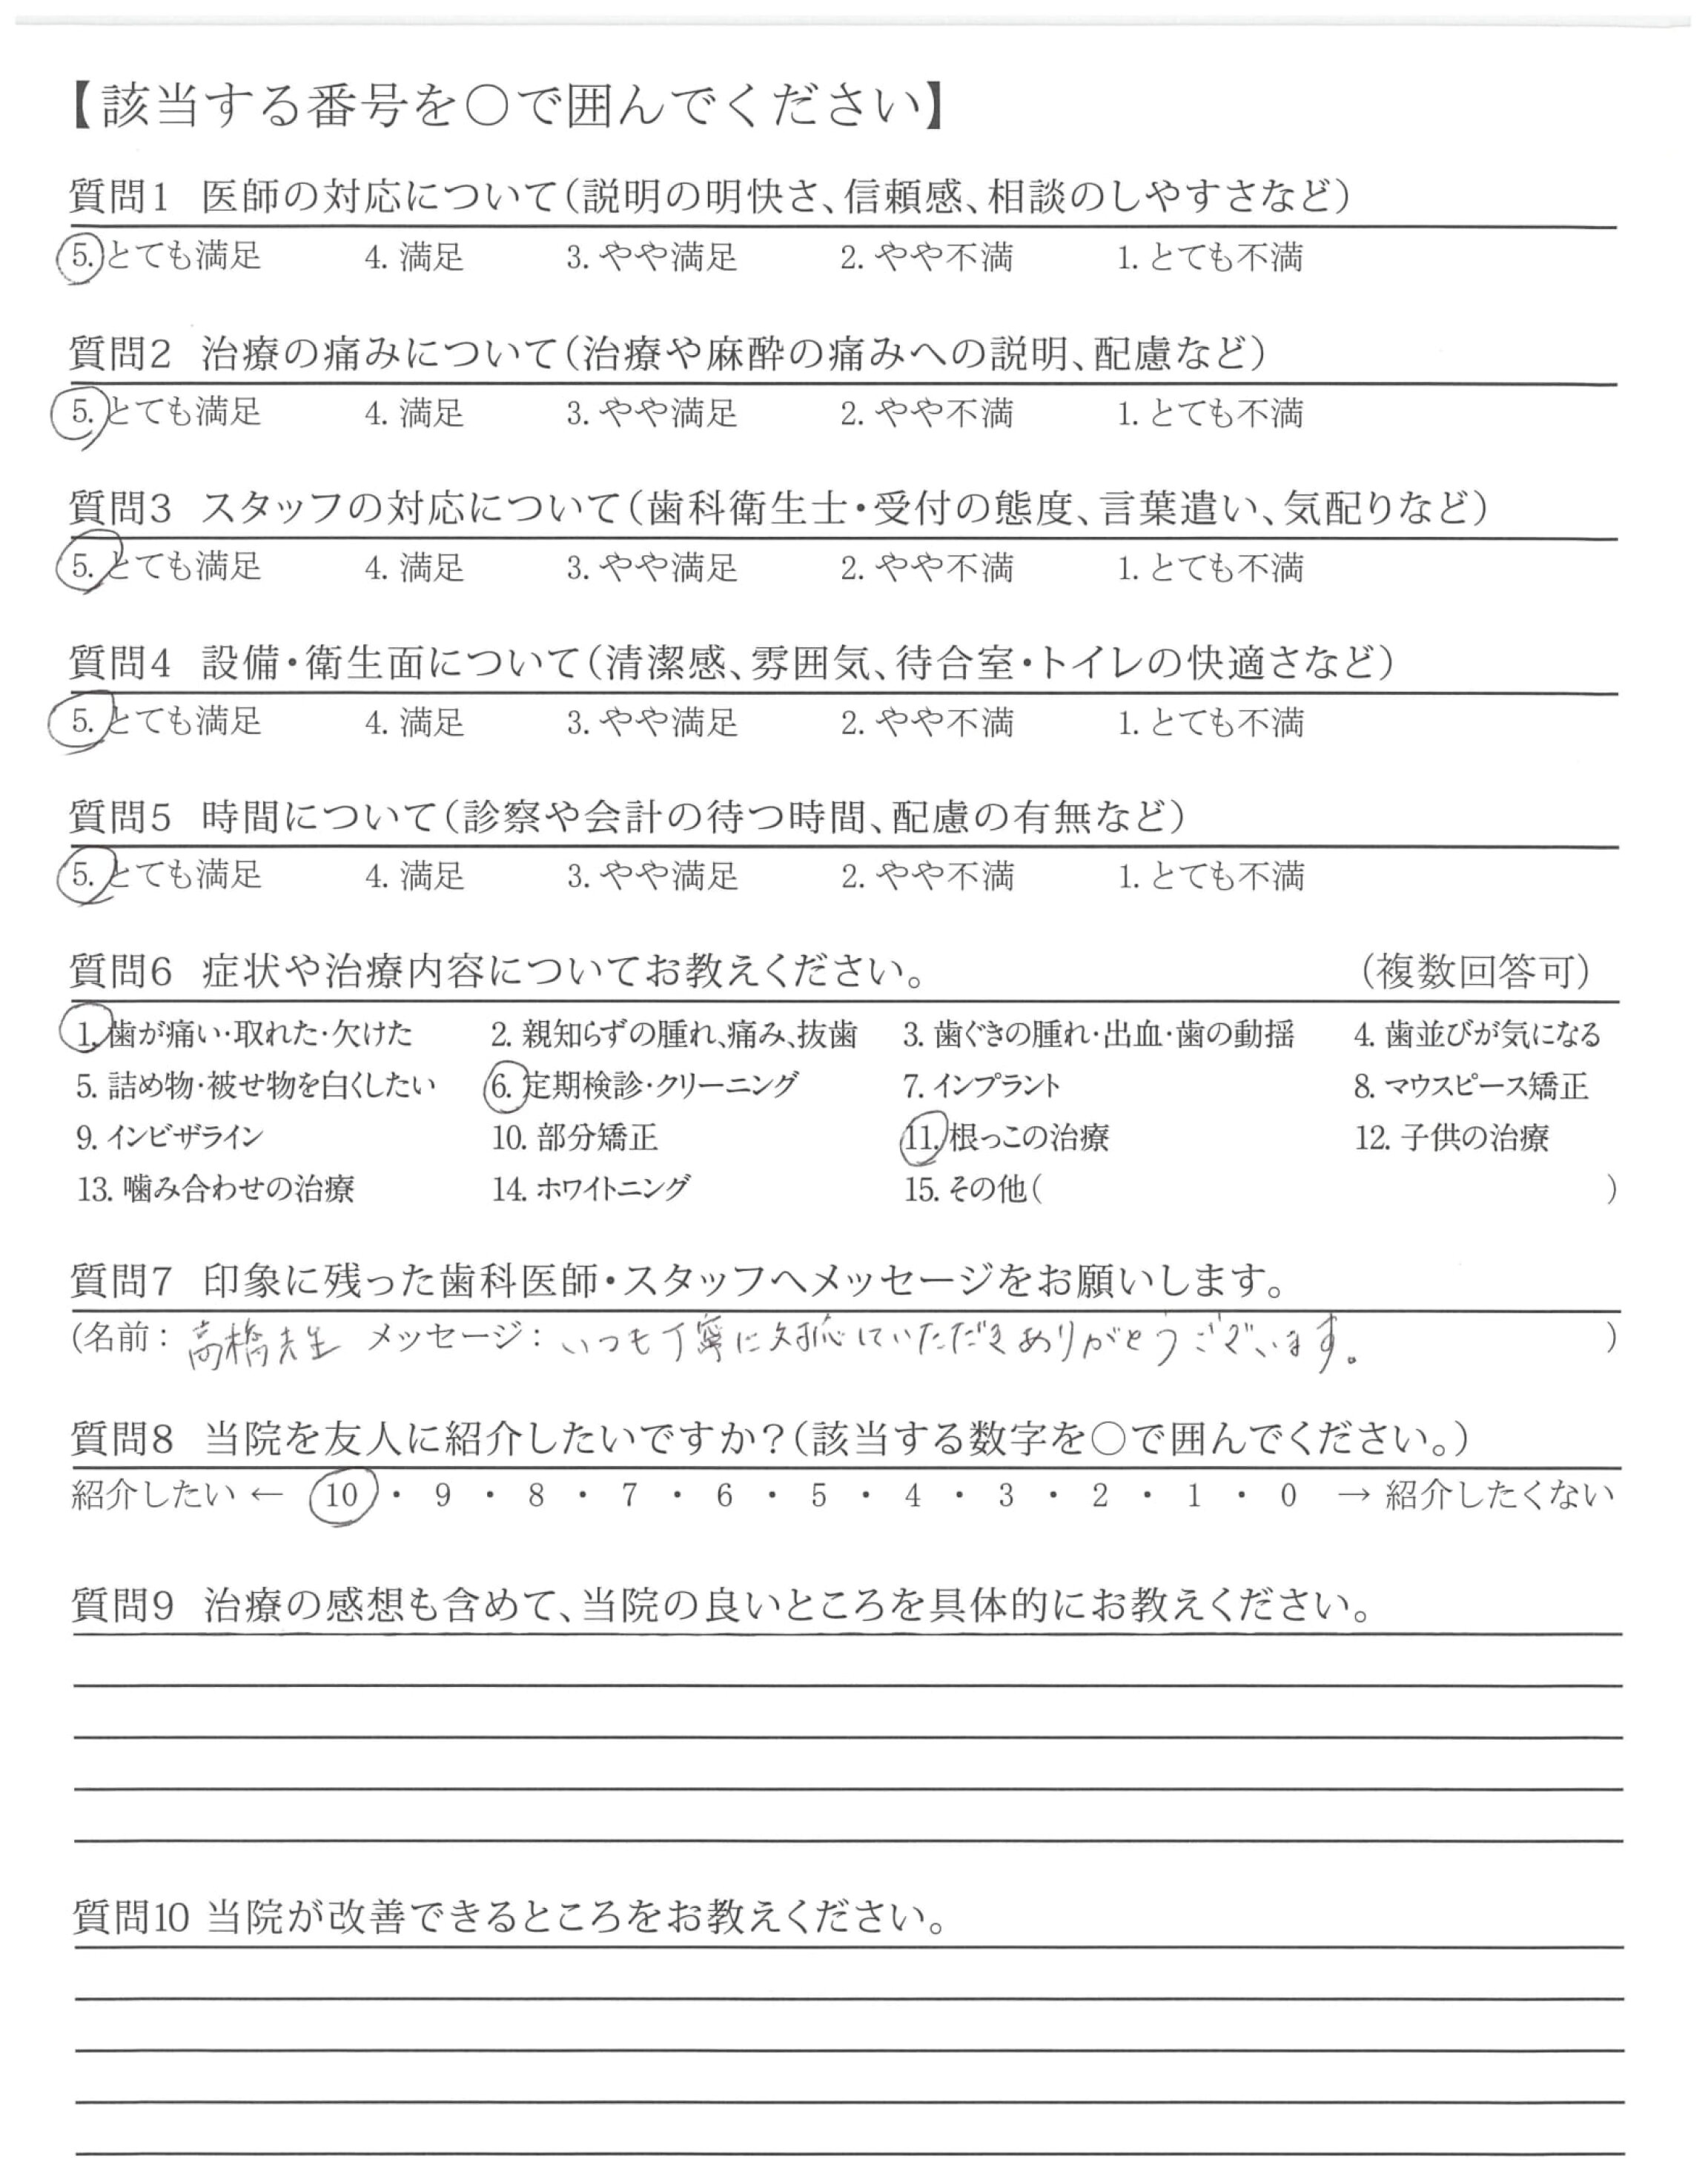 【該当する番号を○で囲んでください】
質問1 医師の対応について(説明の明快さ、信頼感、相談のしやすさなど)
5. とても満足 4. 満足 3. やや満足 2. やや不満 1. とても不満
質問2 治療の痛みについて(治療や麻酔の痛みへの説明、配慮など)
5. とても満足 4. 満足 3. やや満足 2. やや不満 1. とても不満
質問3 スタッフの対応について(歯科衛生士・受付の態度、言葉遣い、気配りなど)
5. とても満足 4. 満足 3. やや満足 2. やや不満 1. とても不満
質問4 設備・衛生面について(清潔感、雰囲気、待合室・トイレの快適さなど)
5. とても満足 4. 満足 3. やや満足 2. やや不満 1. とても不満
質問5 時間について(診察や会計の待つ時間、配慮の有無など)
5. とても満足 4. 満足 3. やや満足 2. やや不満 1. とても不満
質問6 症状や治療内容についてお教えください。 (複数回答可)
1. 歯が痛い・取れた・欠けた 2. 親知らずの腫れ、痛み、抜歯 3. 歯ぐきの腫れ・出血・歯の動揺 4. 歯並びが気になる
5. 詰め物・被せ物を白くしたい 6. 定期検診・クリーニング 7. インプラント 8. マウスピース矯正
9. インビザライン 10. 部分矯正 11. 根っこの治療 12. 子供の治療
13. 噛み合わせの治療 14. ホワイトニング 15. その他( )
質問7 印象に残った歯科医師・スタッフへメッセージをお願いします。
(名前: 高橋先生 メッセージ: いつも丁寧に対応していただきありがとうございます。 )
質問8 当院を友人に紹介したいですか?(該当する数字を○で囲んでください。)
紹介したい ← 10 ・ 9 ・ 8 ・ 7 ・ 6 ・ 5 ・ 4 ・ 3 ・ 2 ・ 1 ・ 0 → 紹介したくない
質問9 治療の感想も含めて、当院の良いところを具体的にお教えください。
質問10 当院が改善できるところをお教えください。